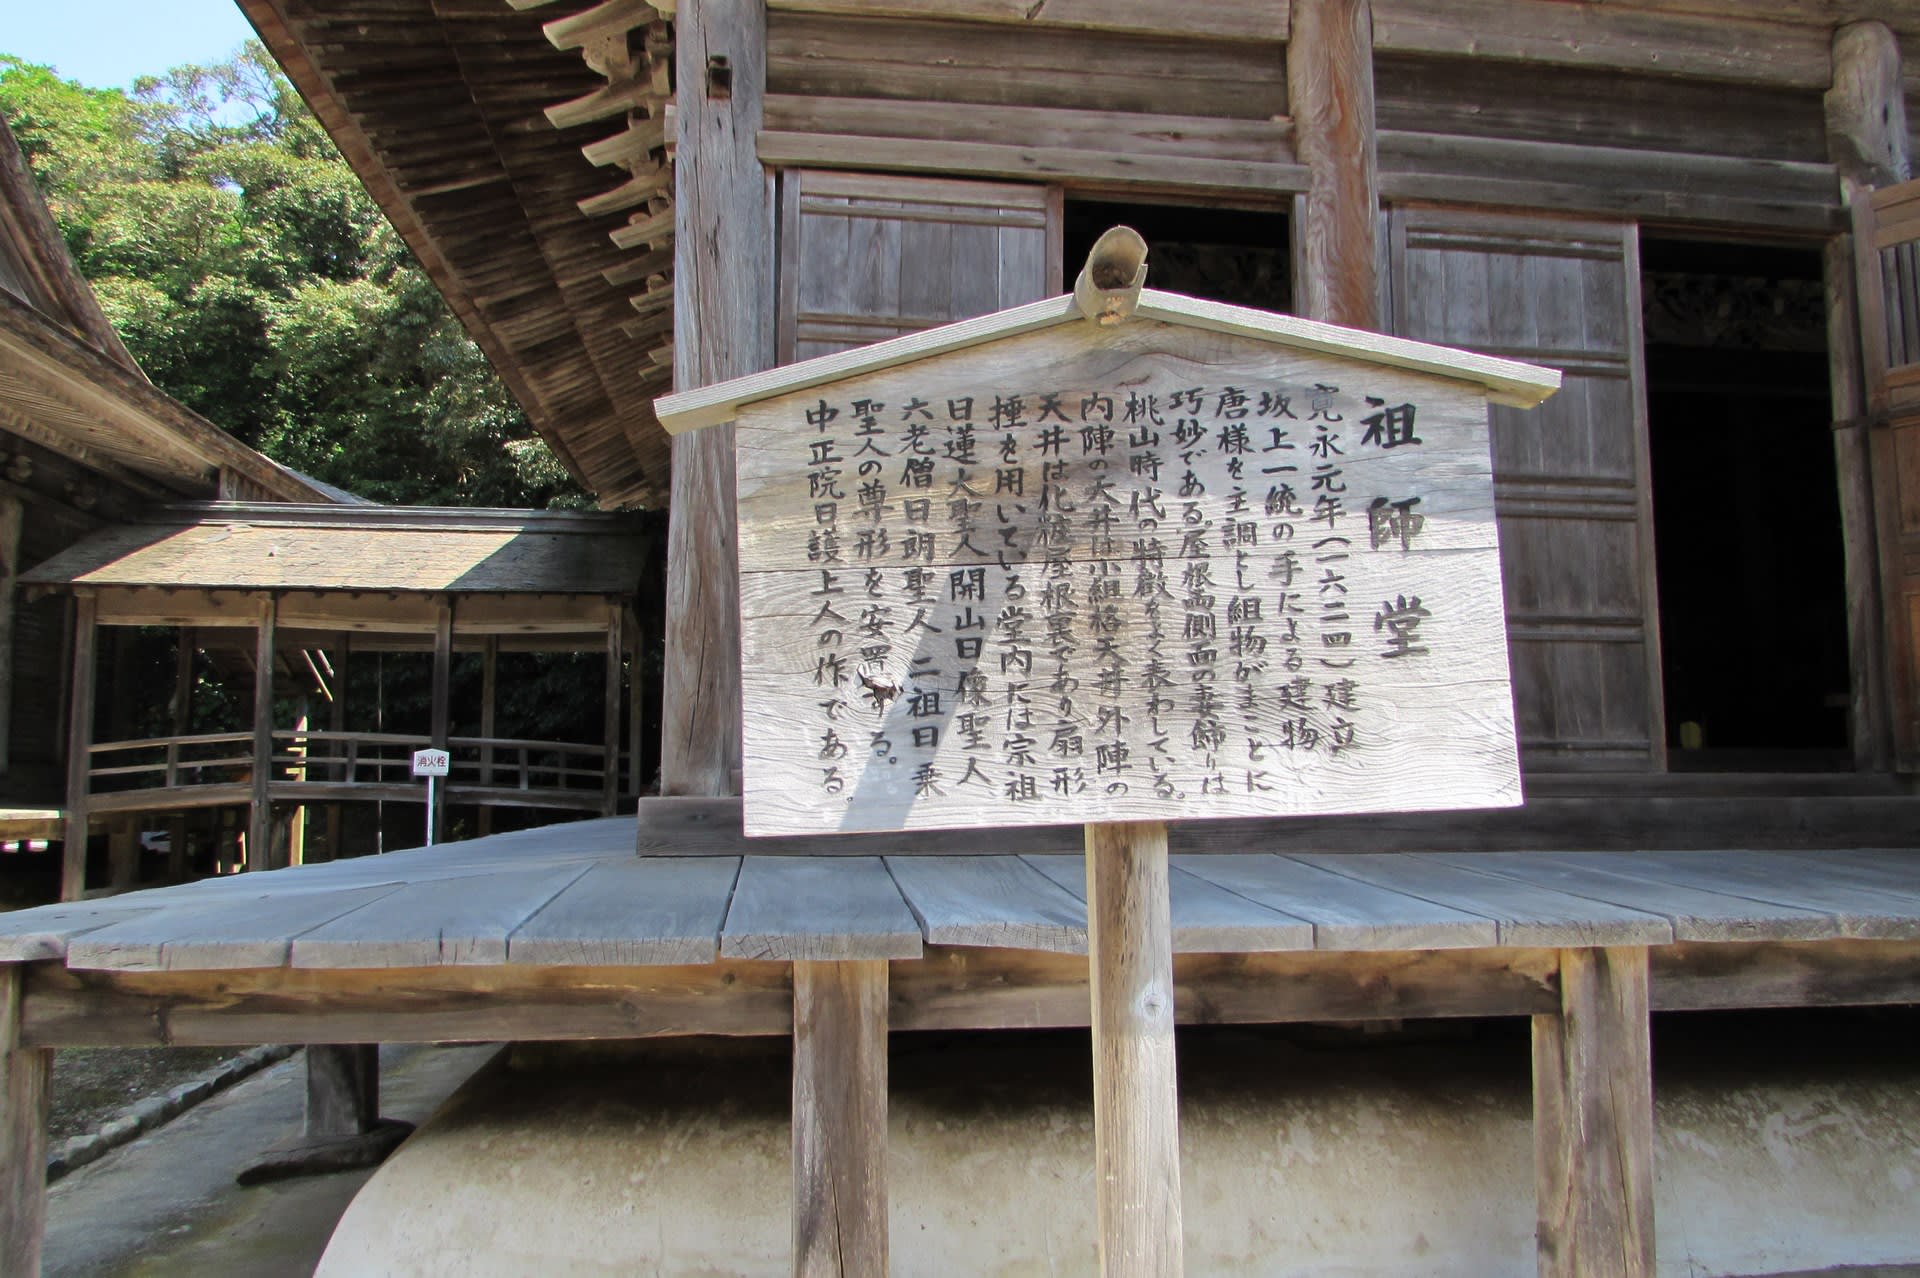 祖師堂
寛永元年(一六二四)建立
坂上一統の手による建物
唐様を主調とし組物がまことに
巧妙である。屋根両側面の妻飾りは
桃山時代の特徴をよく表わしている。
内陣の天井は小組格天井外陣の
天井は化粧屋根裏であり扇形
捶を用いている堂内には宗祖
日蓮大聖人開山日像聖人
六老僧日朗聖人 二祖日乗
聖人の尊形を安置する。
中正院日護上人の作である。
消火栓